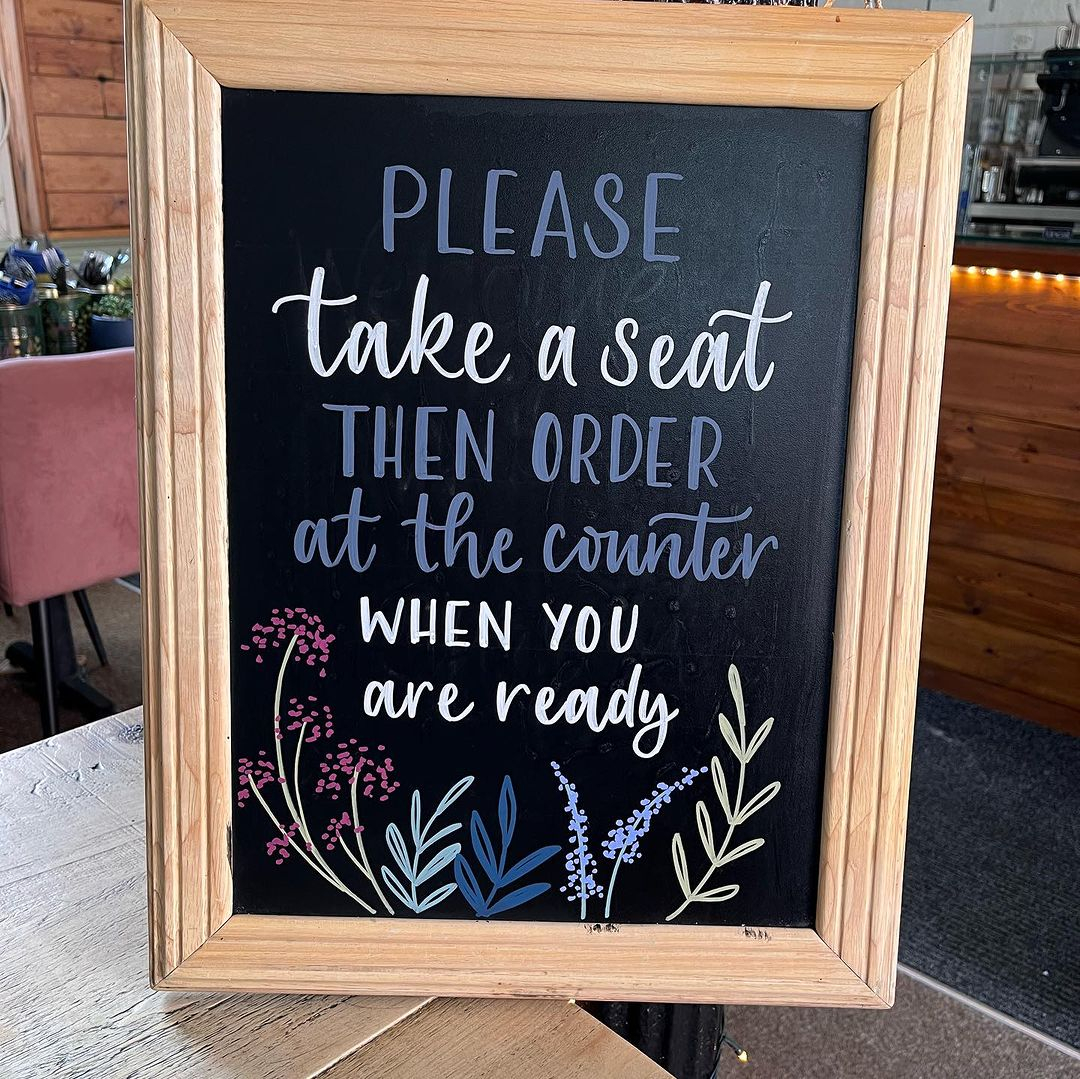 PLEASE
take a seat
THEN ORDER
at the counter
WHEN YOU
are ready